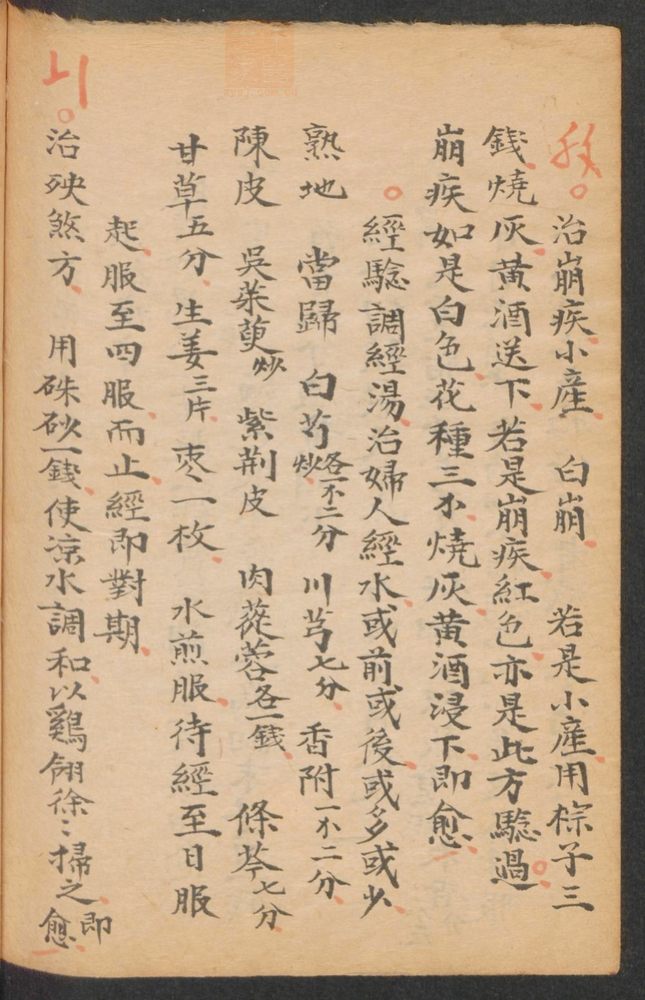 治崩疾小產 白崩 若是小產用棕子三
錢燒灰黄酒送下若是崩疾紅色亦是此方騐過
崩疾如是白色花種三个燒灰黄酒浸下即愈
經騐調經湯治婦人經水或前或後或多或少
熟地 當歸 白芍炒各一个二分 川芎七分 香附一个二分
陳皮 吳茱萸炒 紫荆皮 肉蓯蓉各一錢 條芩七分
甘草五分 生姜三片 枣一枚 水煎服待經至日服
起服至四服而止經即對期
治殃煞方 用硃砂一錢使凉水調和以鷄翎徐〻掃之即愈